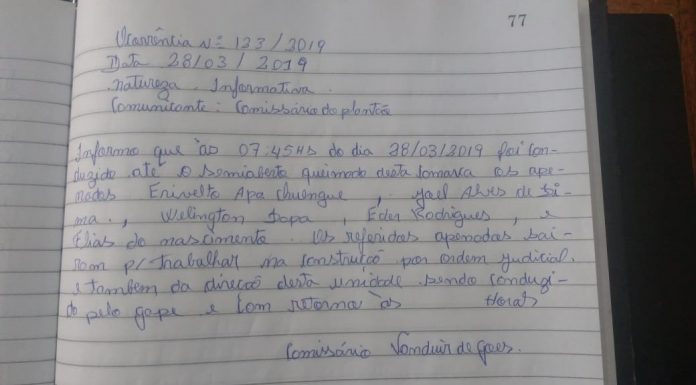 77
Ocorrência Nº 123/2019
Data 28/03/2019
Natureza. Informativa.
Comunicante: Comissário do plantão
Informo que às 07:45Hs do dia 28/03/2019 foi con-
duzido até o semiaberto queimado desta comarca os ape-
nados Erivelto Apa, Yael Alves de Li-
ma., Welington Sopa, Eder Rodrigues, e
Elias do nascimento. Os referidos apenados sai-
ram p/ trabalhar na construçõ por ordem judicial.
e tambem da direcão desta unidade sendo conduzi-
do pelo gape e com retorno às Horas
Comissário Vonduir de Goes.